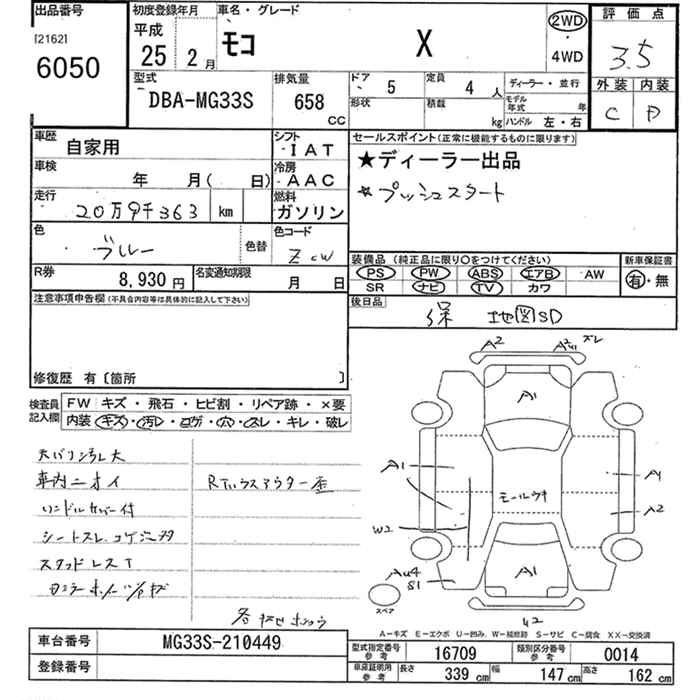 出品番号
[2162]
6050
初度登録年月
平成
25 2月
車名・グレード
モコ X
2WD
・
4WD
評価点
3.5
外装 内装
C D
型式
DBA-MG33S
排気量
658
CC
ドア
5
定員
4 人
ディーラー・並行
形状
積載
kg
モデル年式 年
ハンドル 左・右
車歴
自家用
シフト
IAT
車検
年 月( 日)
冷房
AAC
走行
20万9千363 km
燃料
ガソリン
色
ブルー
色替
色コード
ZCW
R券
8,930円
名変通知期限
月 日
セールスポイント(正常に機能するものに限ります)
★ディーラー出品
★プッシュスタート
装備品(純正品に限り○をつけてください)
PS PW ABS エアB AW
SR ナビ TV カワ
新車保証書
有・無
後日品
保 地図SD
注意事項申告欄(不具合内容等は具体的に記入して下さい)
修復歴 有〔箇所 〕
検査員記入欄
FW キズ・飛石・ヒビ割・リペア跡・×要
内装 キズ・汚レ・コゲ・穴・スレ・キレ・破レ
天バリ汚レ大
車内ニオイ
ハンドルカバー付
シートスレ コゲ
スタッドレス
A2
ズレ
A1
A1
モールウキ
A1
A2
W2
A1
AU4
S1
スペア
U2
A-キズ E-エクボ U-凹み W-補修跡 S-サビ C-腐食 XX-交換済
車台番号
MG33S-210449
登録番号
型式指定番号 参考
16709
類別区分番号 参考
0014
車庫証明用 参考
長さ 339 cm
幅 147 cm
高さ 162 cm